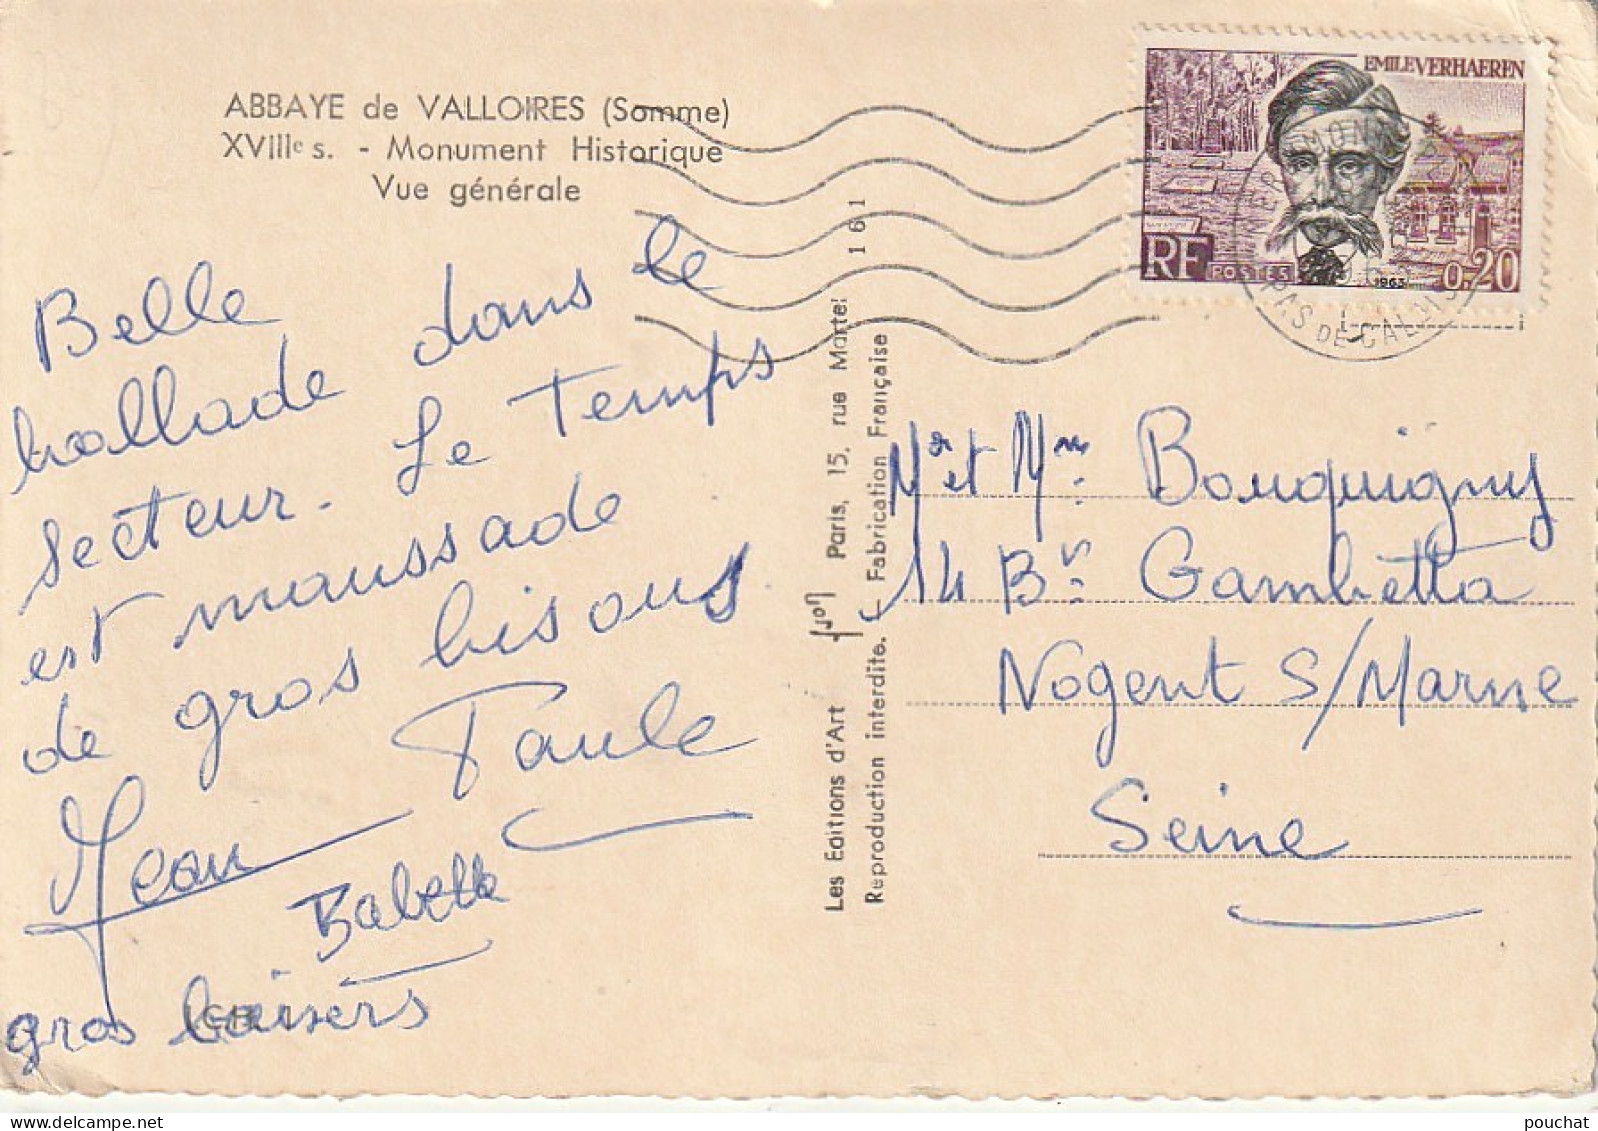 ABBAYE de VALLOIRES (Somme)
XVIIIe s. - Monument Historique
Vue générale
Belle
ballade dans le
secteur. Le Temps
est maussade
de gros bisous
Paule
Jean
Babette
gros baisers
Les Editions d'Art Yvon Paris, 15, rue Martel 161
Reproduction interdite. - Fabrication Française
EMILE VERHAEREN
RF POSTES 1963 0.20
PAS DE CALAIS
Mr et Mme Bouquigny
14 Bv. Gambetta
Nogent s/Marne
Seine
pouchat